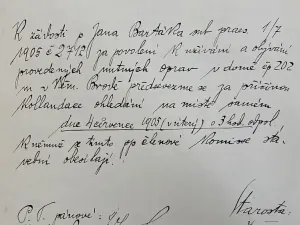 K žádosti p Jana Bartáka sub praes. 1/7
1905 č 2712 za povolení k užívání a obývání
provedených nutných oprav v domě čp 202
m v Něm. Brodě předsevezme se za příčinou
Kollaudace ohledání na místě samém
dne 4 července 1905 (v úterý) o 3 hod. odpol
K němuž se tímto pp členové Komise sta-
vební obesílají.
P. T. pánové:
Starosta: